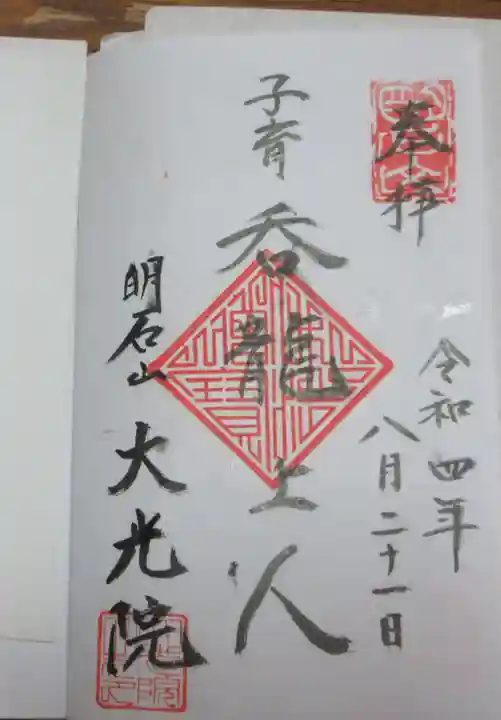 奉拝
令和四年
八月二十一日
子育
呑龍上人
明石山
大光院